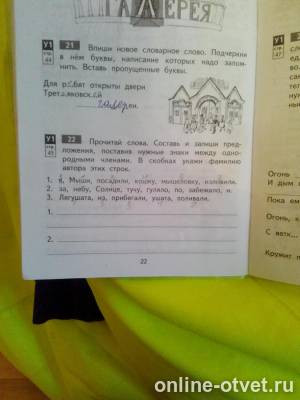 ГАЛЕРЕЯ
У1
стр. 44
21 Впиши новое словарное слово. Подчеркни
в нём буквы, написание которых надо запом-
нить. Вставь пропущенные буквы.
Для р.бят открыты двери
Трет.яковск.й
галере и.
У1
22 Прочитай слова. Составь и запиши пред-
ложения, поставив нужные знаки между одно-
родными членами. В скобках укажи фамилию
автора этих строк.
1. в, Мыши, посадили, кошку, мышеловку, изловили.
2. за, небу, Солнце, тучу, гуляло, по, забежало, и.
3. Лягушата, из, прибегали, ушата, поливали.
1.
2.
22
У1
стр. 47
Огонь
И дым
Пока е
С ветк...
Кружит
online-otvet.ru